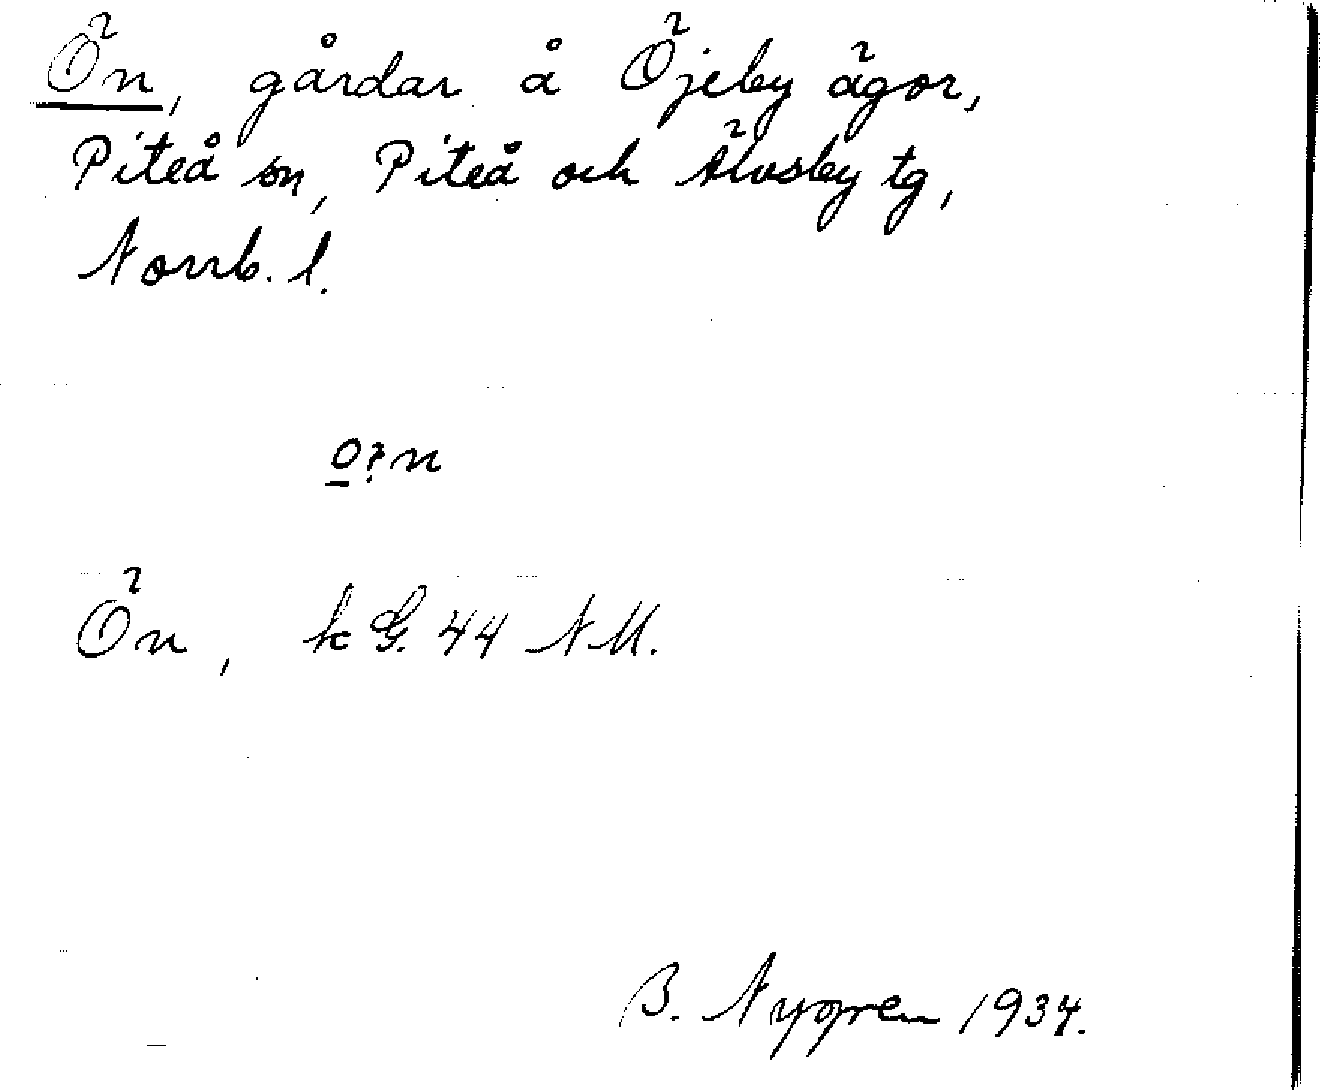 Ön, gårdar å Öjeby ägor,
Piteå sn, Piteå och Älvsby tg,
Norrb. l.
o?n
Ön, k G. 44 NM.
B. Nygren 1934.